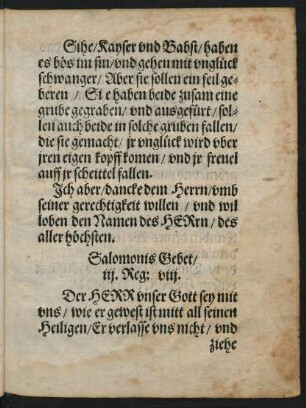 Sihe/Kayser vnd Babst/haben
es bös im sin/vnd gehen mit vnglück
schwanger/Aber sie sollen ein feil ge-
beren / Sie haben beide zusam eine
grube gegraben/vnd ausgefürt/sol-
len auch beide in solche gruben fallen/
die sie gemacht/jr vnglück wird vber
jren eigen kopff komen/vnd jr freuel
auff jr scheittel fallen.
Ich aber/dancke dem Herrn/vmb
seiner gerechtigkeit willen / vnd wil
loben den Namen des HERrn/des
aller höchsten.
Salomonis Gebet/
iij. Reg: viij.
Der HERR vnser Gott sey mit
vns/wie er gewest ist mitt all seinen
Heiligen/Er verlasse vns nicht/vnd
ziehe